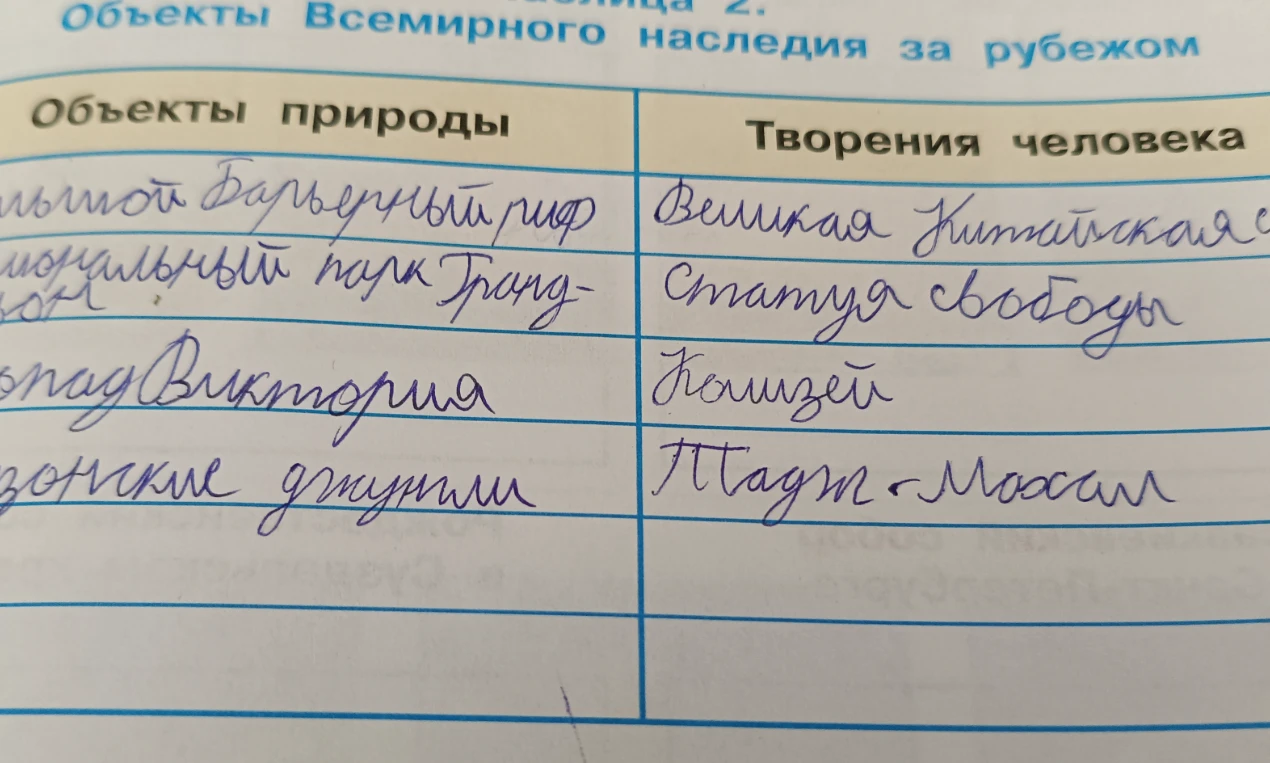 2.
Объекты Всемирного наследия за рубежом
Объекты природы Творения человека
льшой Барьерный риф Великая Китайская с
иональный парк Гранд- Статуя свободы
ьон
опад Виктория Колизей
зонские джунгли Тадж-Махал